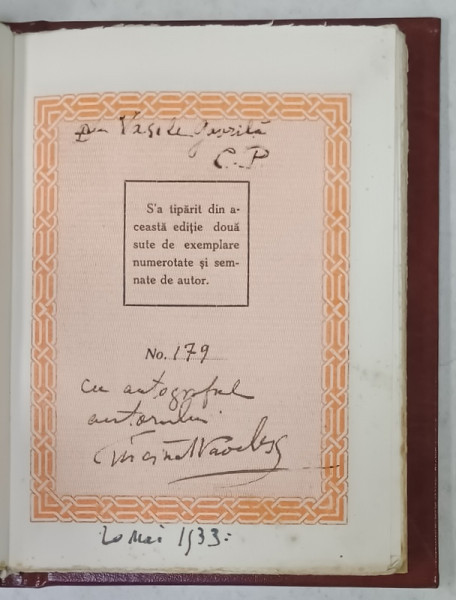 Vasile Gavrilă
C. P.
S'a tipărit din a-
ceastă ediție două
sute de exemplare
numerotate și sem-
nate de autor.
No. 179
cu autograful
autorului
20 Mai 1933: